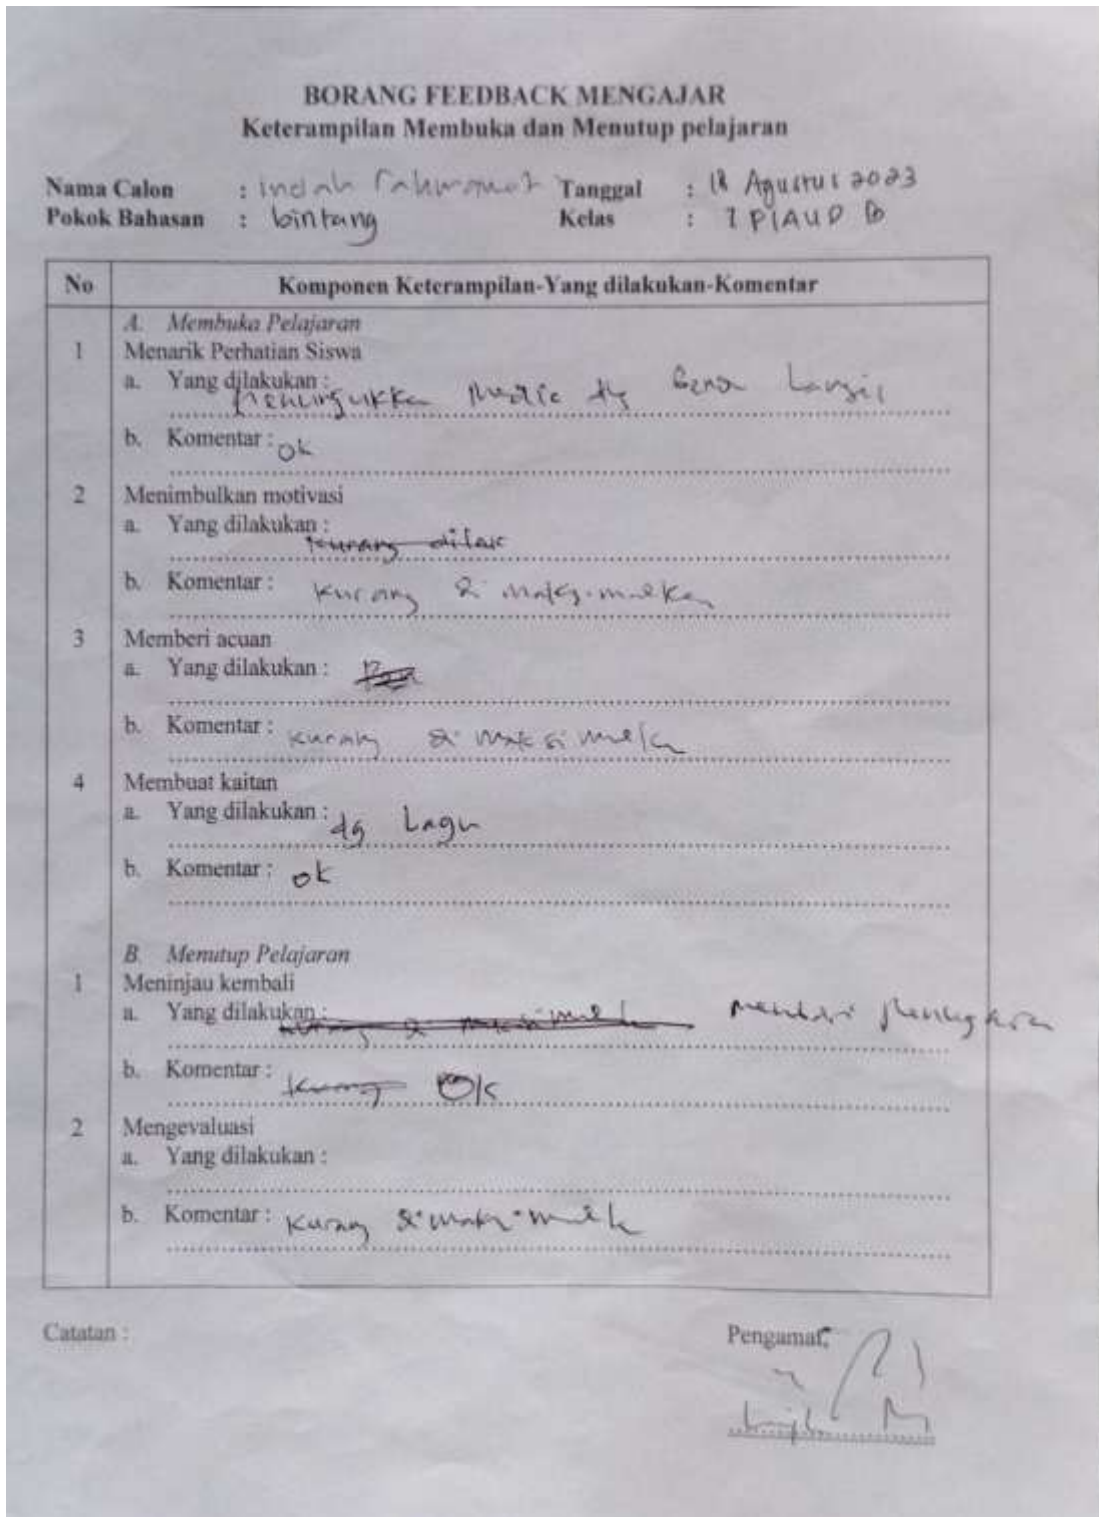 BORANG FEEDBACK MENGAJAR
Keterampilan Membuka dan Menutup pelajaran
Nama Calon : indah rahmawat Tanggal : 18 Agustus 2023
Pokok Bahasan : bintang Kelas : 7 PIAUD B
No Komponen Keterampilan-Yang dilakukan-Komentar
A. Membuka Pelajaran
1 Menarik Perhatian Siswa
a. Yang dilakukan :
Menunjukka Media dg Benda Langit
b. Komentar : ok
2 Menimbulkan motivasi
a. Yang dilakukan :
kurang dilak
b. Komentar : kurang di maksimalkan
3 Memberi acuan
a. Yang dilakukan :
b. Komentar : kurang di maksimalka
4 Membuat kaitan
a. Yang dilakukan : dg Lagu
b. Komentar : ok
B. Menutup Pelajaran
1 Meninjau kembali
a. Yang dilakukan : kurang di maksimalk memberi
b. Komentar : kurang OK
2 Mengevaluasi
a. Yang dilakukan :
b. Komentar : kurang di maksimalk
Catatan : Pengamat,